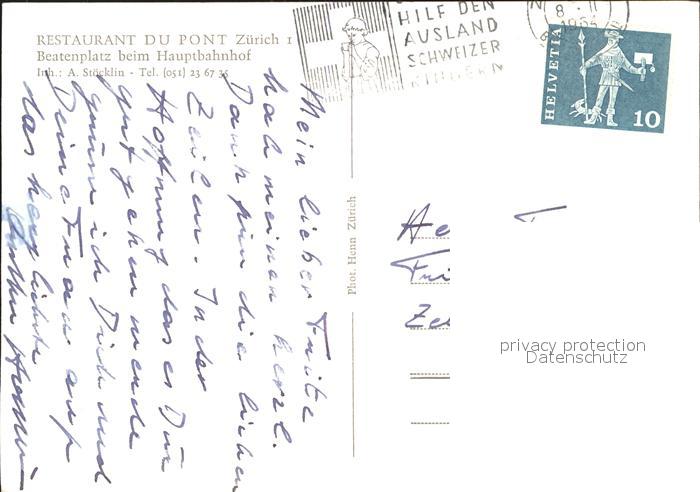 RESTAURANT DU PONT Zürich 1
Beatenplatz beim Hauptbahnhof
Inh.: A. Stöcklin - Tel. (051) 23 67 35
HILF DEN
AUSLAND
SCHWEIZER
KINDERN
8 - II
HELVETIA
10
Mein lieber Fritz
hab meinen herzl.
Dank für die lieben
Zeilen. In der
Hoffnung das es Dir
gut gehen werde
grüsse ich Dich und
Deine Frau auf
das herzlichste
Phot. Henn Zürich
He
Fri
privacy protection
Datenschutz